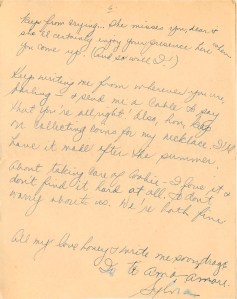 5
keep from crying... She misses you, dear &
she'll certainly enjoy your presence here when
you come up. (And so will I!)
Keep writing me from wherever you are,
darling — & send me a cable to say
that you're all right! Also, hon, keep
on collecting coins for my necklace. I'll
have it made after the summer.
About taking care of Cookie — I love it &
don't find it hard at all. So don't
worry about us. We're both fine
All my love honey & write me some
Te amo amore.
Sylvia